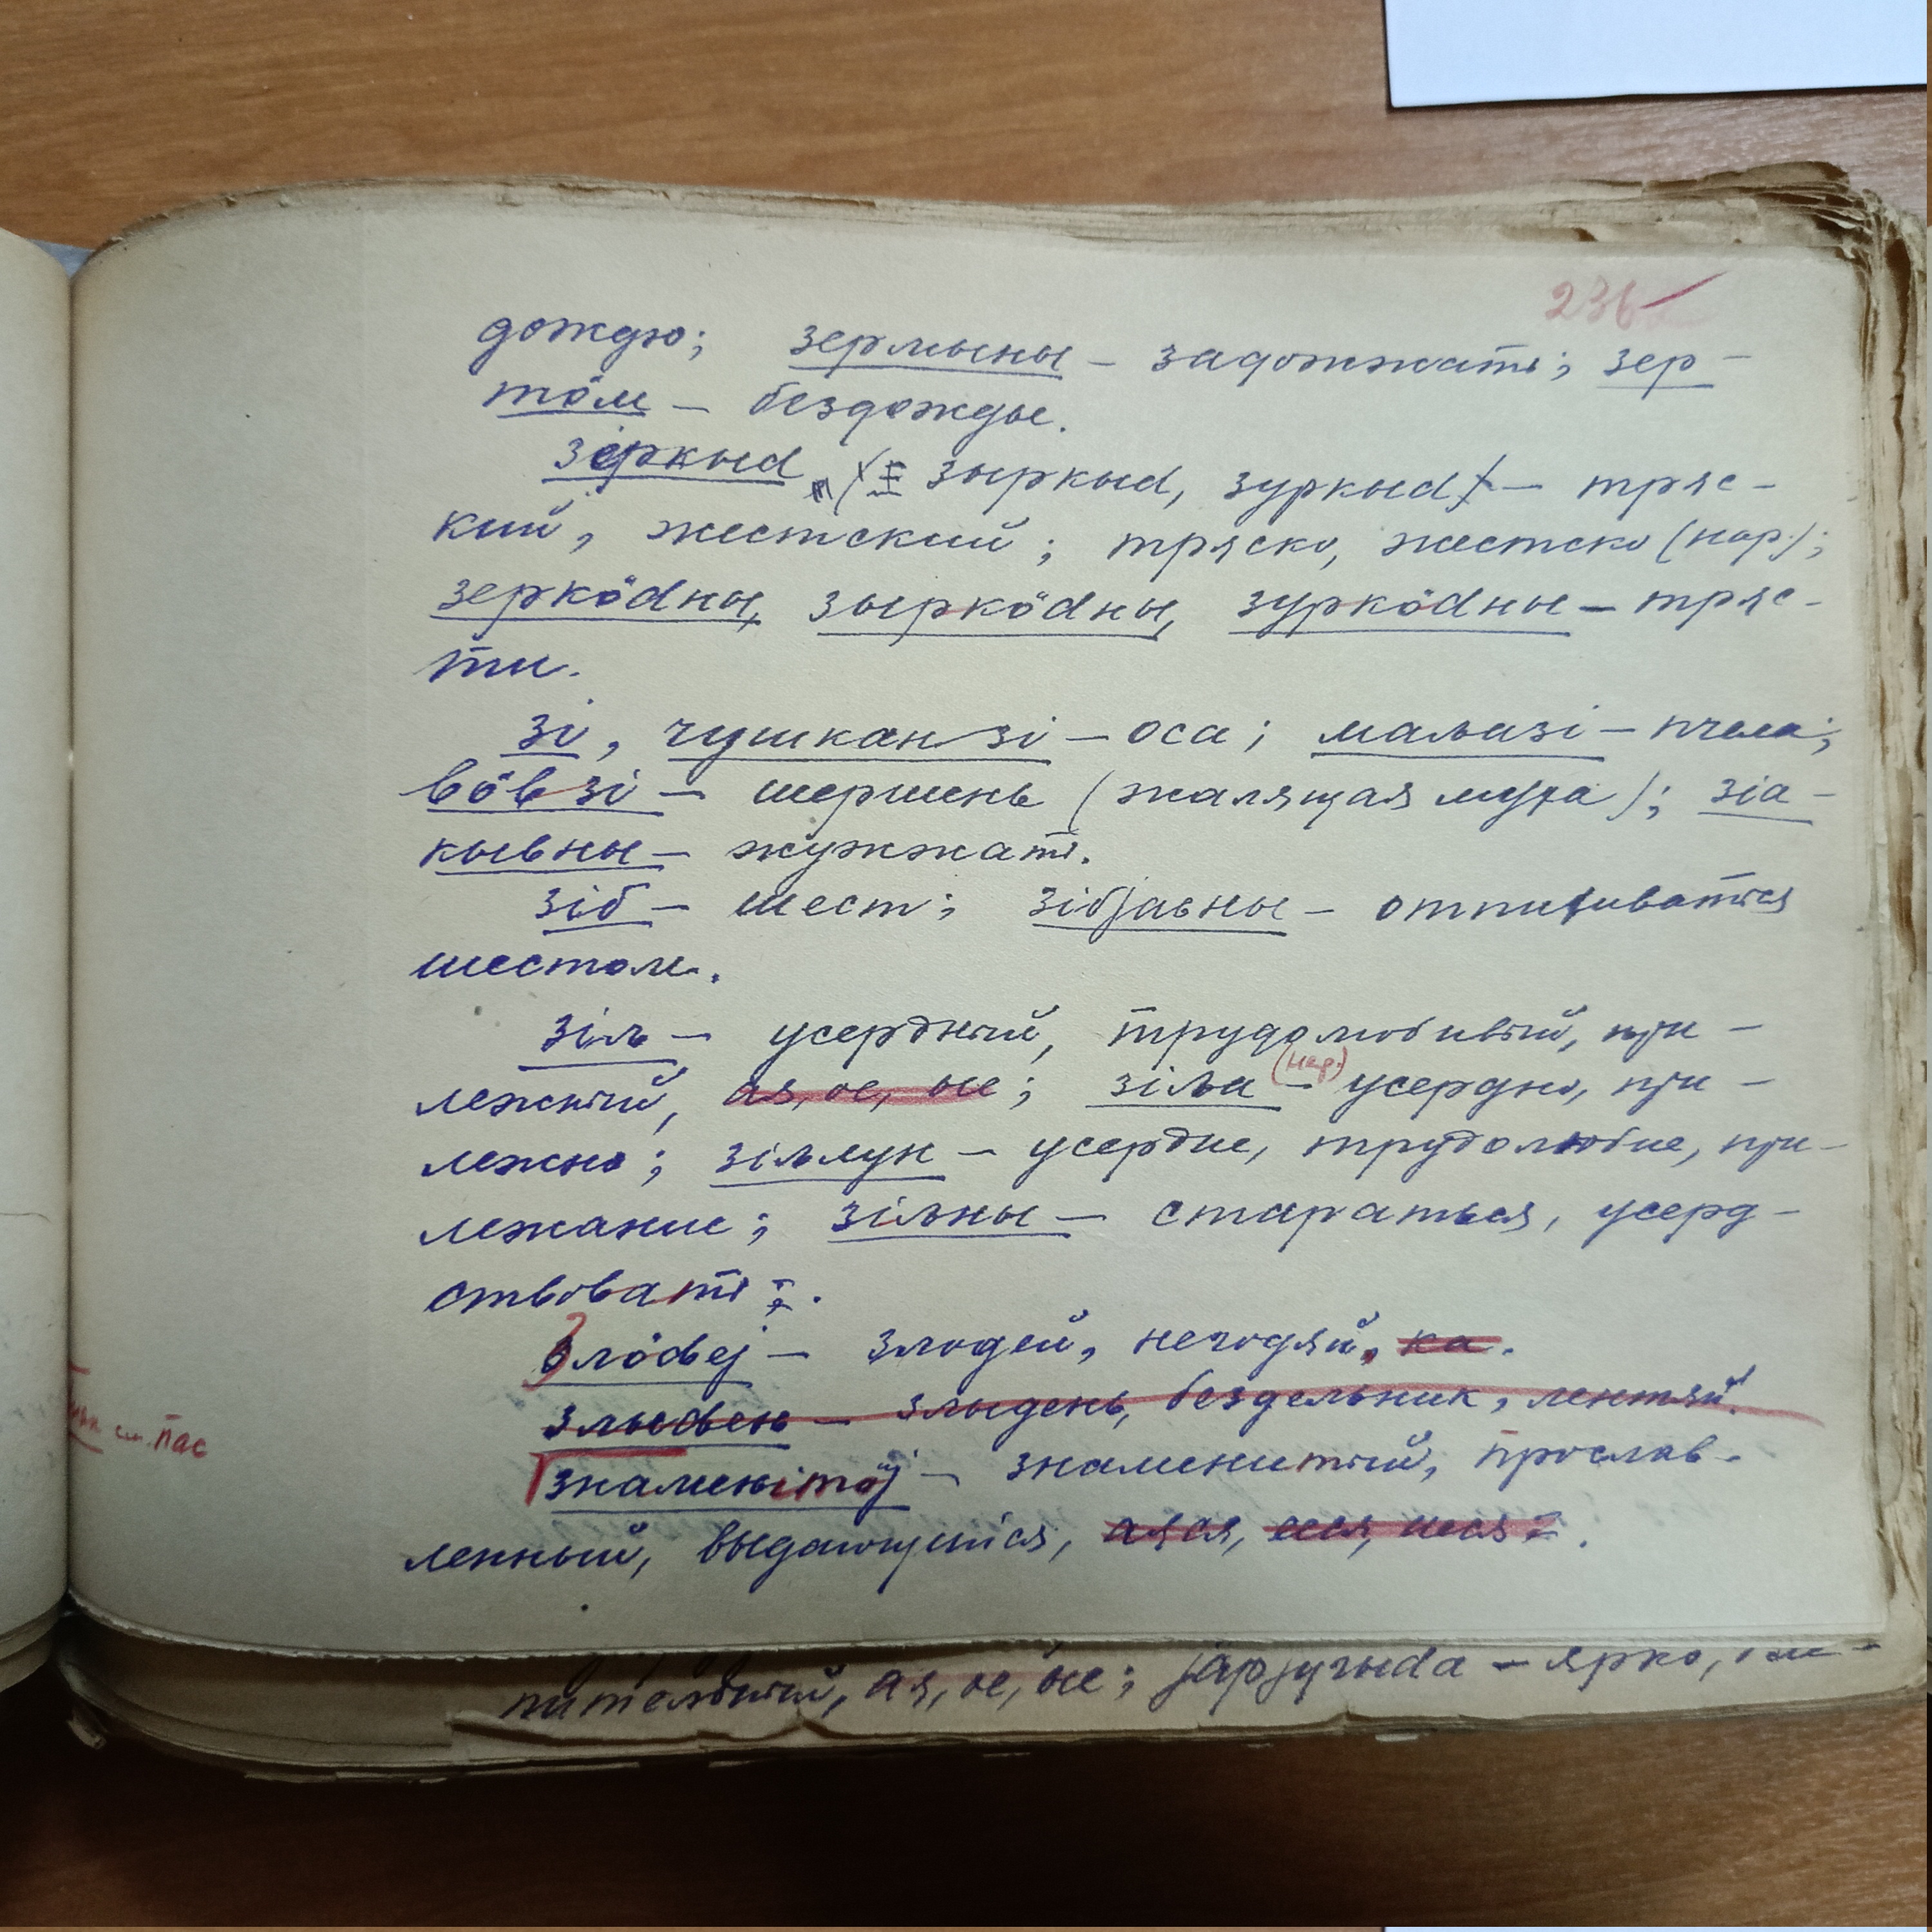 236
дождю; зермыны – задожжать; зер-
тöм – бездождье.
зеркыd (= зыркыd, зуркыd) – тряс-
кий, жестский; тряско, жестско (нар.);
зеркödны, зыркödны, зуркödны – тряс-
ти.
зі, чушканзі – оса; маљазі – пчела;
вöвзі – шершень (жалящая муха); зіа-
кывны – жужжать.
зіб – шест; зібјавны – отпихиваться
шестом.
зіљ – усердный, трудолюбивый, при-
лежный, ая, ое, ые; зіља (нар.) – усердно, при-
лежно; зіљлун – усердие, трудолюбие, при-
лежание; зіљны – стараться, усерд-
ствовать.
злöдеј – злодей, негодяй, ка.
– злыдень, бездельник, лентяй.
см. пас
знаменітöј – знаменитый, прослав-
ленный, выдающийся, аяся, ееся, иеся.
ая, ое, ые; јарјугыdа – ярко,